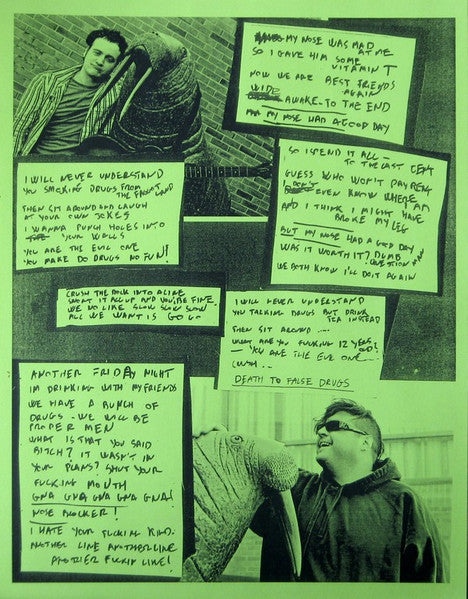 MY NOSE WAS MAD
AT ME
SO I GAVE HIM SOME
VITAMIN T
NOW WE ARE BEST FRIENDS
AGAIN
WIDE
AWAKE - TO THE END
MY NOSE HAD A GOOD DAY
SO I SPEND IT ALL -
TO THE LAST CENT
GUESS WHO WON'T PAY RENT
DON'T EVEN KNOW WHERE I AM
AND I THINK I MIGHT HAVE
BROKE MY LEG
BUT MY NOSE HAD A GOOD DAY
WAS IT WORTH IT? DUMB
QUESTION MAN
WE BOTH KNOW I'LL DO IT AGAIN
I WILL NEVER UNDERSTAND
YOU SMOKING DRUGS FROM
THE LAND
THEN SIT AROUND AND LAUGH
AT YOUR OWN JOKES
I WANNA PUNCH HOLES INTO
YOUR WALLS
YOU ARE THE EVIL ONE
YOU MAKE DO DRUGS NO FUN!
CRUSH THE ROCK INTO A LINE
SNORT IT ALL UP AND YOU'RE FINE
WE NO LIKE SLOW SLOW SLOW
ALL WE WANT IS GO GO
I WILL NEVER UNDERSTAND
YOU TALKING DRUGS BUT DRINK
TEA INSTEAD
THEN SIT AROUND ....
WHAT ARE YOU FUCKING 12 YEARS
OLD?
- YOU ARE THE EVIL ONE
DEATH TO FALSE DRUGS
ANOTHER FRIDAY NIGHT
IM DRINKING WITH MY FRIENDS
WE HAVE A BUNCH OF
DRUGS - WE WILL BE
PROPER MEN
WHAT IS THAT YOU SAID
BITCH? IT WASN'T IN
YOUR PLANS? SHUT YOUR
FUCKING MOUTH
GNA GNA GNA GNA GNA!
NOSE BLOCKER!
I HATE YOUR FUCKING KIND.
ANOTHER LINE ANOTHER LINE
ANOTHER FUCKIN LINE!